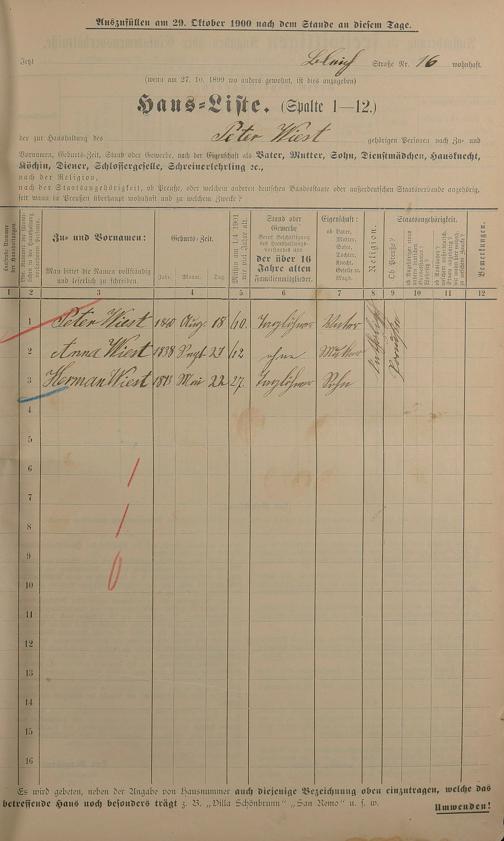 Auszufüllen am 29. Oktober 1900 nach dem Stande an diesem Tage.
Jetzt Bleich Straße Nr. 16 wohnhaft.
(wenn am 27. 10. 1899 wo anders gewohnt, ist dies anzugeben)
Haus-Liste. (Spalte 1—12.)
der zur Haushaltung des Peter Wiest gehörigen Personen nach Zu- und
Vornamen, Geburts-Zeit, Stand oder Gewerbe, nach der Eigenschaft als Vater, Mutter, Sohn, Dienstmädchen, Hausknecht,
Köchin, Diener, Schlossergeselle, Schreinerlehrling ꝛc.,
nach der Religion,
nach der Staatsangehörigkeit, ob Preuße, oder welchem anderen deutschen Bundesstaate oder außerdeutschen Staatsverbande angehörig,
seit wann in Preußen überhaupt wohnhaft und zu welchem Zwecke?
Zu- und Vornamen:
Man bittet die Namen vollständig
und leserlich zu schreiben.
Geburts-Zeit.
Jahr. Monat. Tag.
Stand oder
Gewerbe
der über 16
Jahre alten
Familienmitglieder.
Eigenschaft:
ob Vater,
Mutter,
Sohn,
Tochter,
Knecht,
Geselle u.
Magd.
Religion.
Staatsangehörigkeit.
Ob Preuße?
Bemerkungen.
1 2 3 4 5 6 7 8 9 10 11 12
1 Peter Wiest 1840 Aug. 18 60. Taglöhner Vater
2 Anna Wiest 1838 Sept 27 62 ohne Mutter
3 Herman Wiest 1873 Mai 22 27. Taglöhner Sohn
4
5
6
7
8
9
10
11
12
13
14
15
16
Es wird gebeten, neben der Angabe von Hausnummer auch diejenige Bezeichnung oben einzutragen, welche das
betreffende Haus noch besonders trägt z. B. „Villa Schönbrunn" „San Remo" u. s. w.
Umwenden!